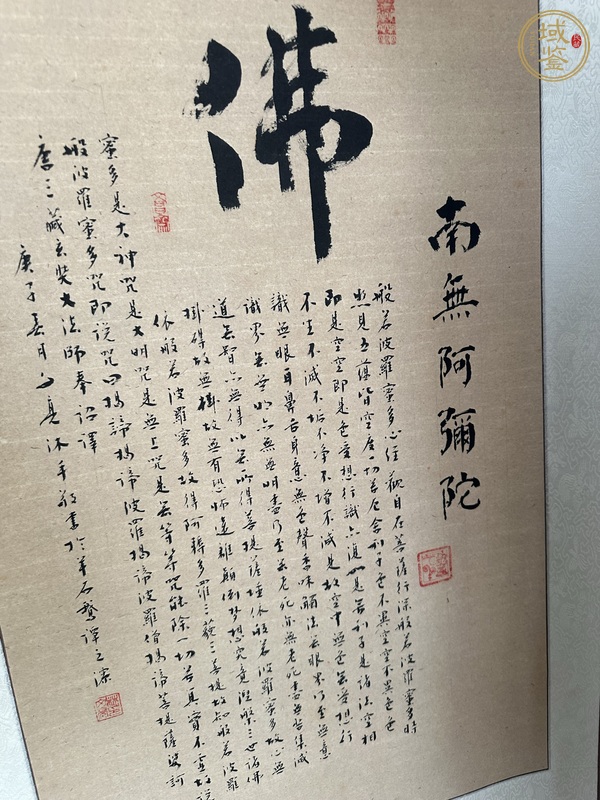 南無阿彌陀
佛
般若波羅蜜多心经觀自在菩薩行深般若波羅蜜多時
照見五蕴皆空度一切苦厄舍利子色不異空空不異色色
即是空空即是色受想行識亦復如是舍利子是諸法空相
不生不滅不垢不净不增不減是故空中無色無受想行
識無眼耳鼻舌身意無色聲香味觸法無眼界乃至無意
識界無無明亦無無明盡乃至無老死亦無老死盡無苦集滅
道無智亦無得以無所得菩提薩埵依般若波羅蜜多故心無
掛碍故無掛碍故無有恐怖遠離顛倒梦想究竟涅槃三世諸佛
依般若波羅蜜多故得阿耨多羅三藐三菩提故知般若波羅
蜜多是大神咒是大明咒是無上咒是無等等咒能除一切苦真實不虚故说
般波羅蜜多咒即说咒曰揭諦揭諦波羅揭諦波羅僧揭諦菩提薩婆訶
唐三藏玄奘大法師奉詔譯
庚子 月 沐手敬書於羊石 譚之
域鉴